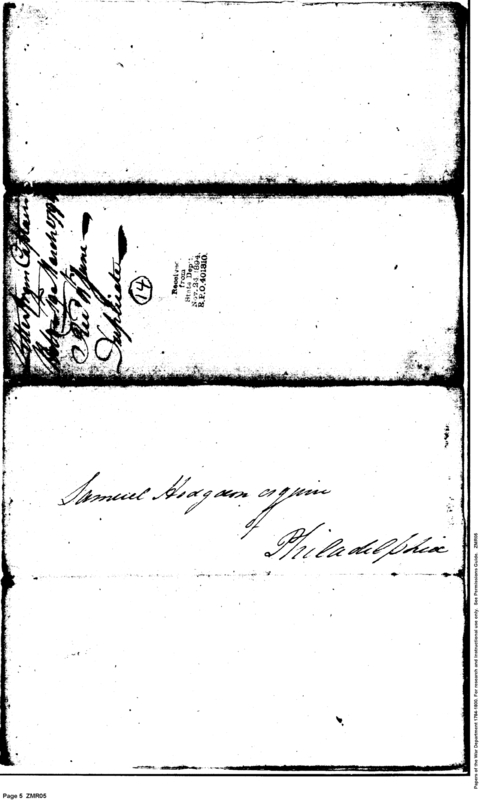 Letter from
March
Rec'd June
Duplicate
14
Received
from
State Dept.
Nov. 24, 1894.
R.P.O. 401810.
Samuel Hodgdon esquire
of
Philadelphia
Page 5 ZMR05
Papers of the War Department 1784-1800. For research and instructional use only. See Permissions Guide. ZMR05